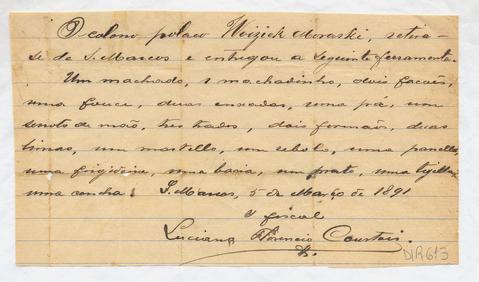 O colono polaco Woizick Moraski, retira-
se de S. Marcos e entregou a seguinte ferramenta.
Um machado, 1 machadinho, dois facões,
uma fouce, duas enxadas, uma pá, um
serrote de mão, tres trados, dois formões, duas
limas, um martello, um rebolo, uma panella,
uma frigideira, uma bacia, um prato, uma tijella,
uma concha. S. Marcos, 5 de Março de 1891
O fiscal
Luciano Florencio Courtois.
DIR613